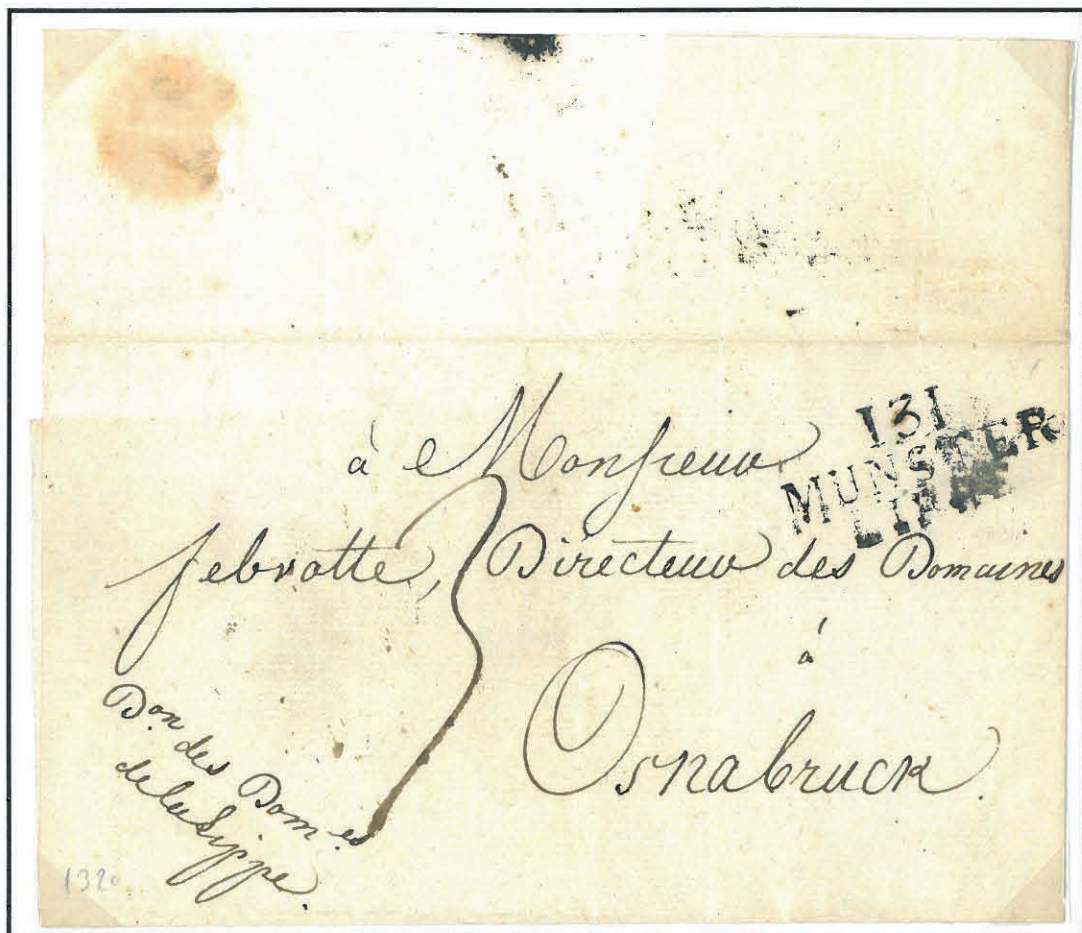 131
MUNSTER
LIPPE
à Monsieur
febvotte, Directeur des Domaines
à
Osnabruck.
3
Don des Dom.es
de la Lippe.
132